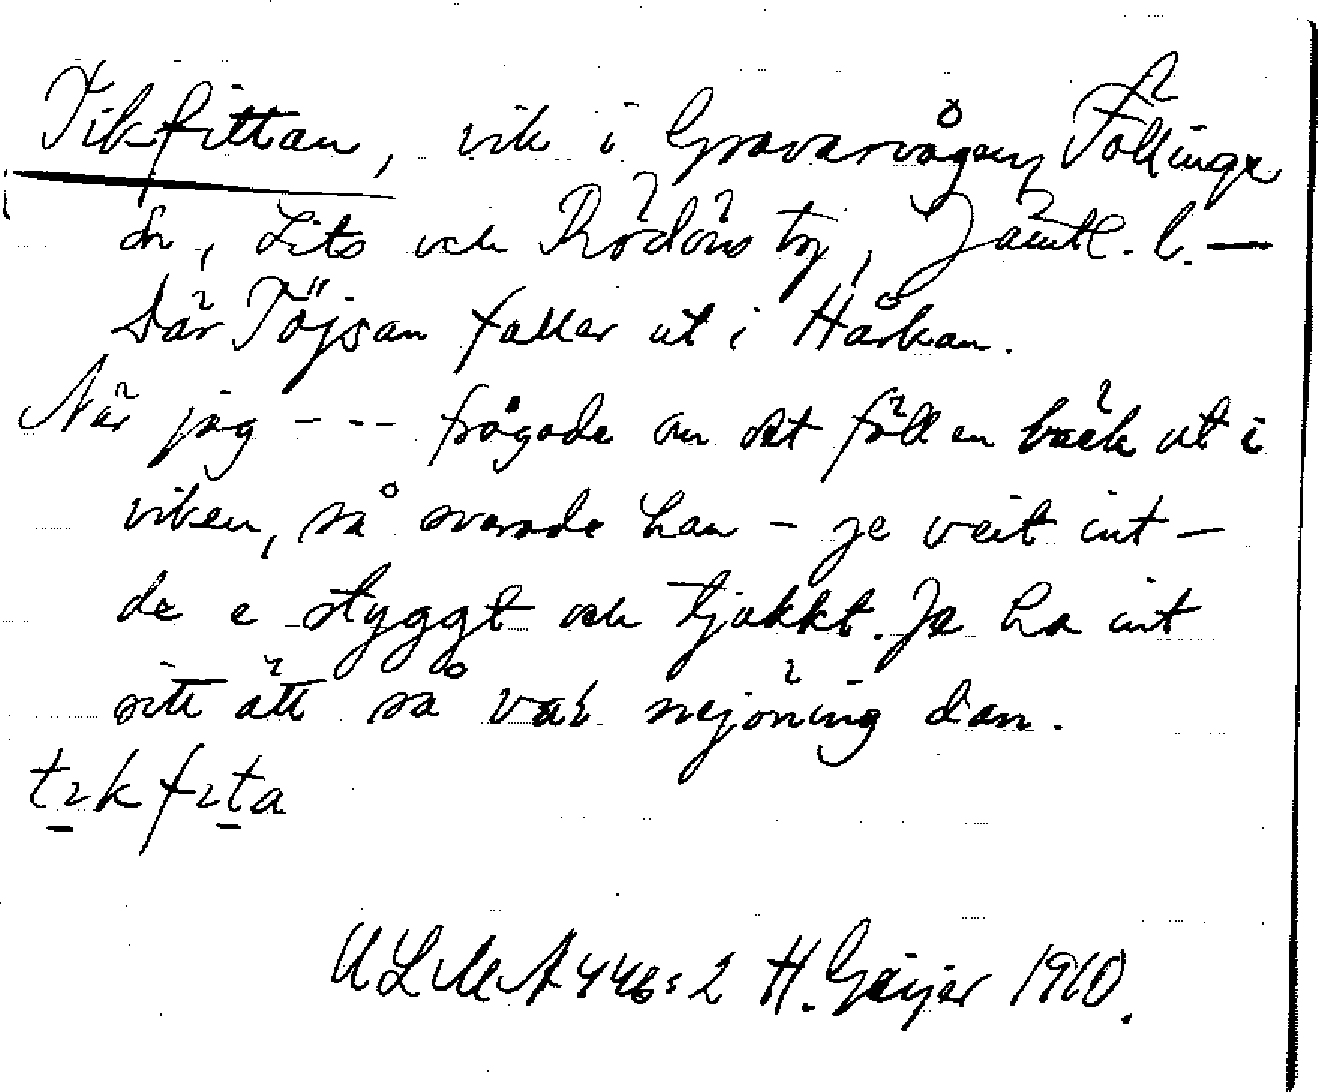 Tikfittan, vik i Gravarvågen, Föllinge
sn, Lits och Rödöns tg, Jämtl. l. —
Där Töjsan faller ut i Hårkan.
När jag - - - frågade om det föll en bäck ut i
viken, så svarade han - je veit int -
de e styggt och tjokkt. Je ha int
sitt ått så var
dan.
tıkfıta
ULMA 446:2 H. Geijer 1910.